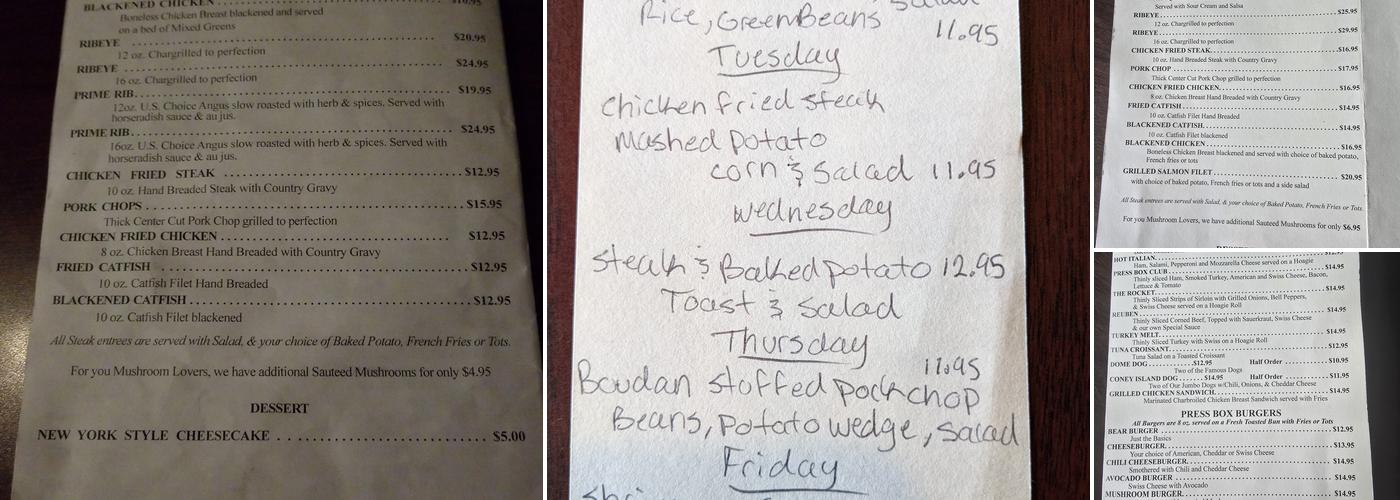 BLACKENED CHICKEN $16.95
Boneless Chicken Breast blackened and served
on a bed of Mixed Greens
RIBEYE $20.95
12 oz. Chargrilled to perfection
RIBEYE $24.95
16 oz. Chargrilled to perfection
PRIME RIB $19.95
12oz. U.S. Choice Angus slow roasted with herb & spices. Served with
horseradish sauce & au jus.
PRIME RIB $24.95
16oz. U.S. Choice Angus slow roasted with herb & spices. Served with
horseradish sauce & au jus.
CHICKEN FRIED STEAK $12.95
10 oz. Hand Breaded Steak with Country Gravy
PORK CHOPS $15.95
Thick Center Cut Pork Chop grilled to perfection
CHICKEN FRIED CHICKEN $12.95
8 oz. Chicken Breast Hand Breaded with Country Gravy
FRIED CATFISH $12.95
10 oz. Catfish Filet Hand Breaded
BLACKENED CATFISH $12.95
10 oz. Catfish Filet blackened
All Steak entrees are served with Salad, & your choice of Baked Potato, French Fries or Tots.
For you Mushroom Lovers, we have additional Sauteed Mushrooms for only $4.95
DESSERT
NEW YORK STYLE CHEESECAKE $5.00
Rice, Green Beans, Salad
11.95
Tuesday
chicken fried steak
mashed potato
corn & salad 11.95
Wednesday
steak & Baked potato 12.95
Toast & salad
Thursday
11.95
Boudan stoffed porkchop
Beans, Potato wedge, salad
Friday
Served with Sour Cream and Salsa
RIBEYE $25.95
12 oz. Chargrilled to perfection
RIBEYE $29.95
16 oz. Chargrilled to perfection
CHICKEN FRIED STEAK $16.95
10 oz. Hand Breaded Steak with Country Gravy
PORK CHOP $17.95
Thick Center Cut Pork Chop grilled to perfection
CHICKEN FRIED CHICKEN $16.95
8 oz. Chicken Breast Hand Breaded with Country Gravy
FRIED CATFISH $14.95
10 oz. Catfish Filet Hand Breaded
BLACKENED CATFISH $14.95
10 oz. Catfish Filet blackened
BLACKENED CHICKEN $16.95
Boneless Chicken Breast blackened and served with choice of baked potato,
French fries or tots
GRILLED SALMON FILET $20.95
with choice of baked potato, French fries or tots and a side salad
All Steak entrees are served with Salad, & your choice of Baked Potato, French Fries or Tots
For you Mushroom Lovers, we have additional Sauteed Mushrooms for only $6.95
HOT ITALIAN $14.95
Ham, Salami, Pepperoni and Mozzarella Cheese served on a Hoagie
PRESS BOX CLUB $14.95
Thinly sliced Ham, Smoked Turkey, American and Swiss Cheese, Bacon,
Lettuce & Tomato
THE ROCKET $14.95
Thinly Sliced Strips of Sirloin with Grilled Onions, Bell Peppers,
& Swiss Cheese served on a Hoagie Roll
REUBEN $14.95
Thinly Sliced Corned Beef, Topped with Sauerkraut, Swiss Cheese
& our own Special Sauce
TURKEY MELT $14.95
Thinly Sliced Turkey with Swiss on a Hoagie Roll
TUNA CROISSANT $12.95
Tuna Salad on a Toasted Croissant
DOME DOG $12.95 Half Order $10.95
Two of the Famous Dogs
CONEY ISLAND DOG $14.95 Half Order $11.95
Two of Our Jumbo Dogs w/Chili, Onions, & Cheddar Cheese
GRILLED CHICKEN SANDWICH $14.95
Marinated Charbroiled Chicken Breast Sandwich served with Fries
PRESS BOX BURGERS
All Burgers are 8 oz. served on a Fresh Toasted Bun with Fries or Tots
BEAR BURGER $12.95
Just the Basics
CHEESEBURGER $13.95
Your choice of American, Cheddar or Swiss Cheese
CHILI CHEESEBURGER $14.95
Smothered with Chili and Cheddar Cheese
AVOCADO BURGER $14.95
Swiss Cheese with Avocado
MUSHROOM BURGER $14.95